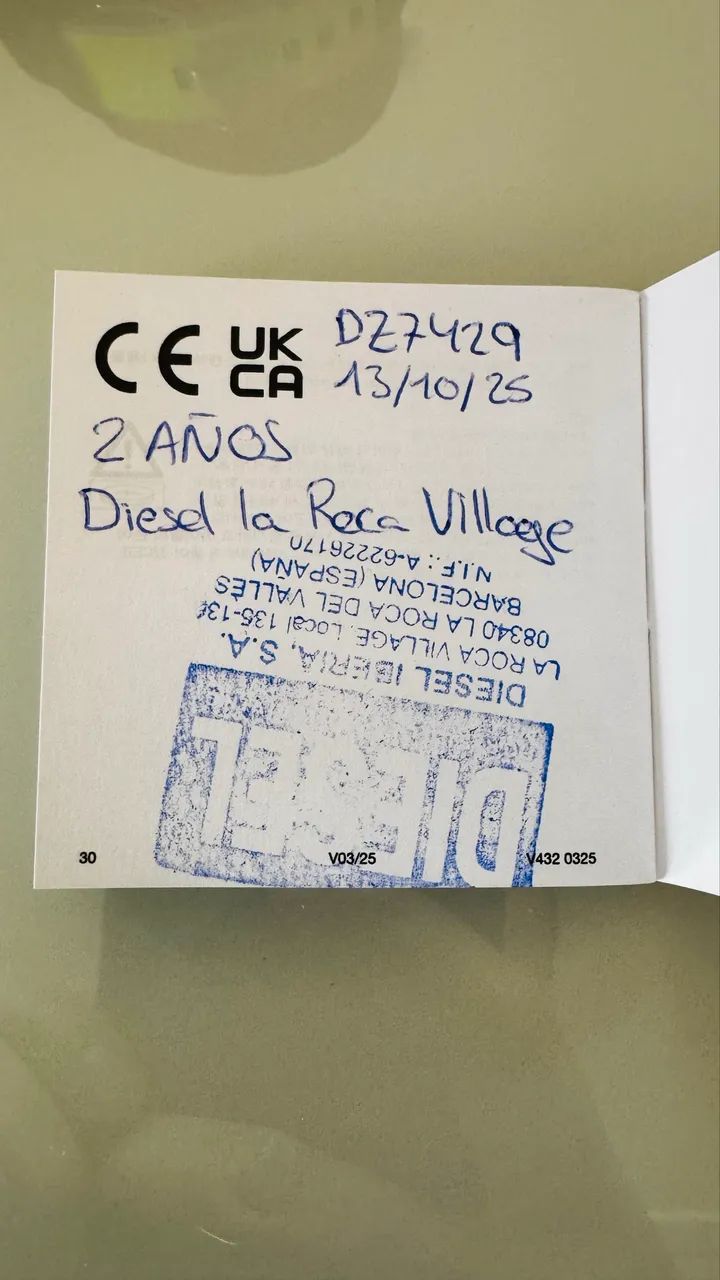 CE UK CA
DZ7429
13/10/25
2 AÑOS
Diesel la Roca Village
DIESEL
DIESEL IBERIA, S.A.
LA ROCA VILLAGE. Local 135-136
08340 LA ROCA DEL VALLÈS
BARCELONA (ESPAÑA)
N.I.F.: A-62226170
30
V03/25
V432 0325